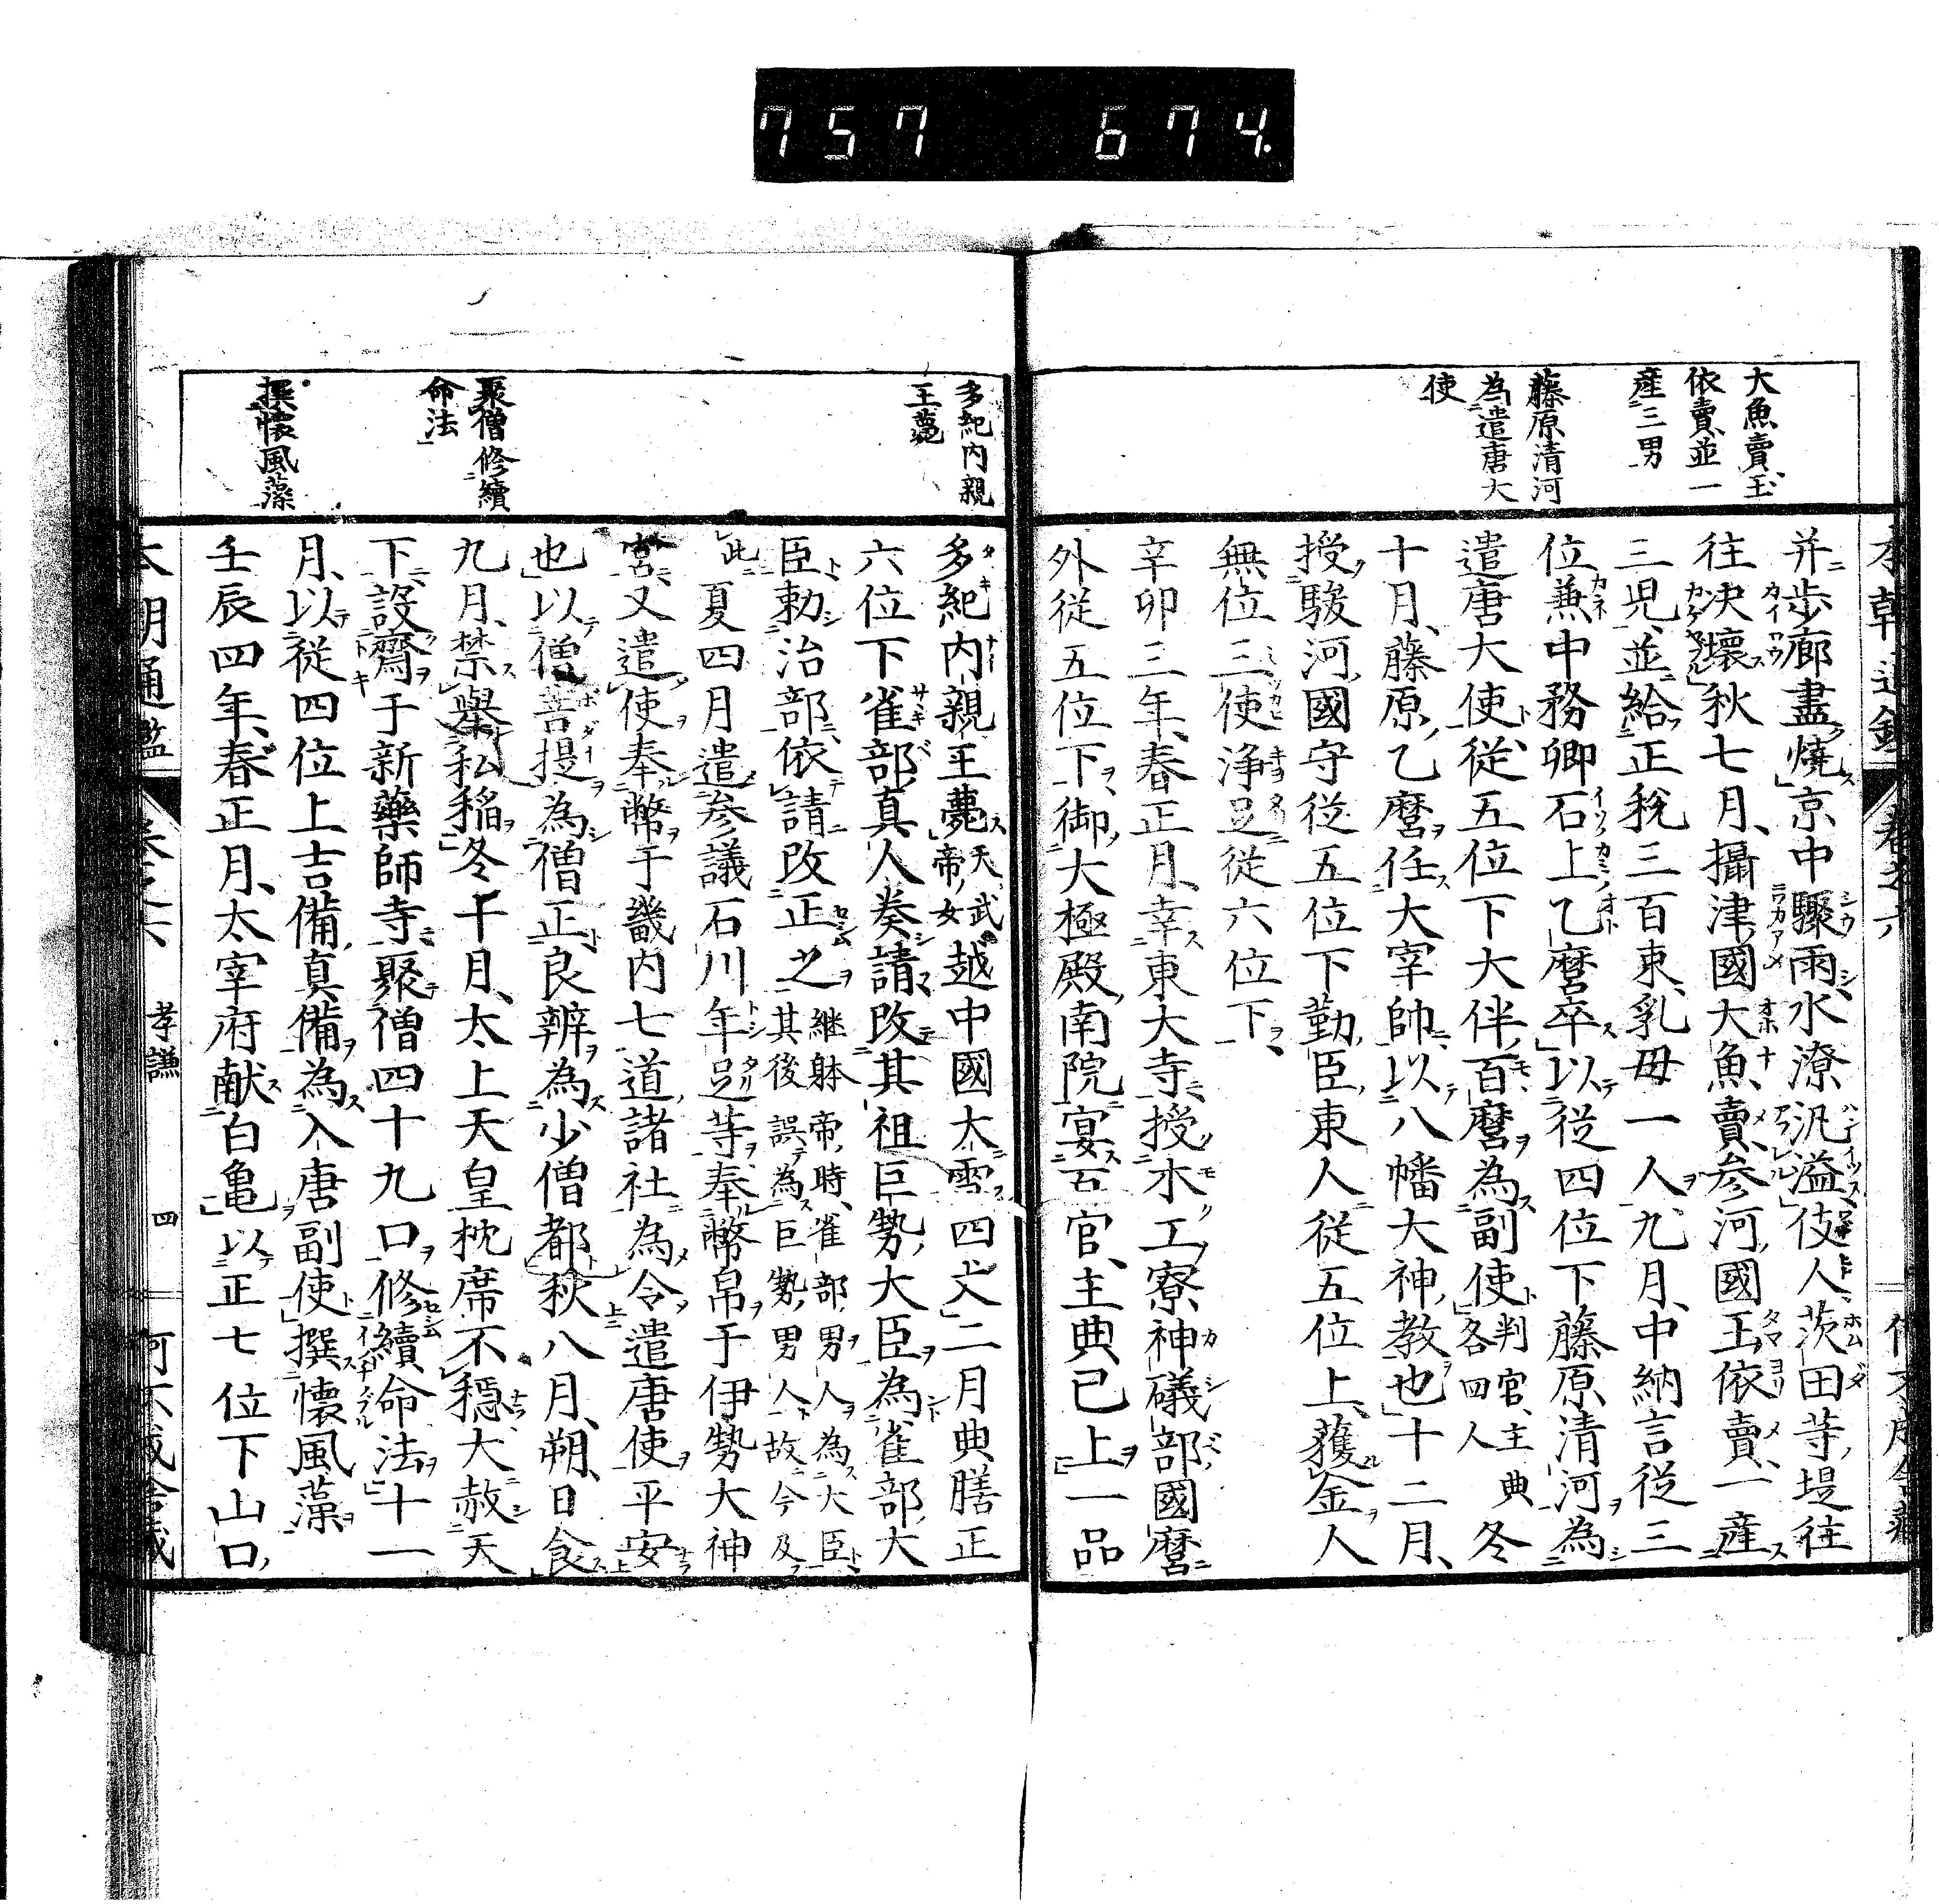 757 674.
大魚賣、玉
依賣、並一
産三男
藤原清河
為遣唐大
使
并歩廊盡燒京中驟雨、水潦汎溢伎人、茨田等、堤往
往决壞秋七月、攝津國大魚賣、参河國玉依賣、一産
三児、並給正税三百束、乳母一人、九月、中納言従三
位兼中務卿石上乙麿卒以從四位下藤原清河為
遣唐大使、從五位下大伴百麿為副使判官、主典各四人冬
十月、藤原乙麿任大宰帥、以八幡大神教也十二月、
授駿河國守從五位下勤臣東人従五位上、獲金人
無位三使浄足従六位下、
辛卯三年、春正月、幸東大寺、授木工寮神礒部國麿
外從五位下、御大極殿南院宴百官、主典已上一品
多紀内親
王薨
聚僧修續
命法
撰懐風藻
多紀内親王薨天武帝女越中國大雪四丈二月典膳正
六位下雀部真人奏請改其祖巨勢大臣為雀部大
臣、勅治部、依請改正之継躰帝時、雀部男人為大臣、其後誤為巨勢男人、故今及
此夏四月遣参議石川年足等奉幣帛于伊勢大神
宮、又遣使奉幣于畿内七道諸社為令遣唐使平安
也以僧菩提為僧正、良辨為少僧都秋八月、朔、日食
九月、禁舉私稲冬十月、太上天皇枕席不穏大赦天
下、設齋于新藥師寺聚僧四十九口修續命法十一
月、以従四位上吉備真備為入唐副使撰懐風藻
壬辰四年、春正月、太宰府献白亀以正七位下山口
本朝通鑑
卷之六
孝謙
四